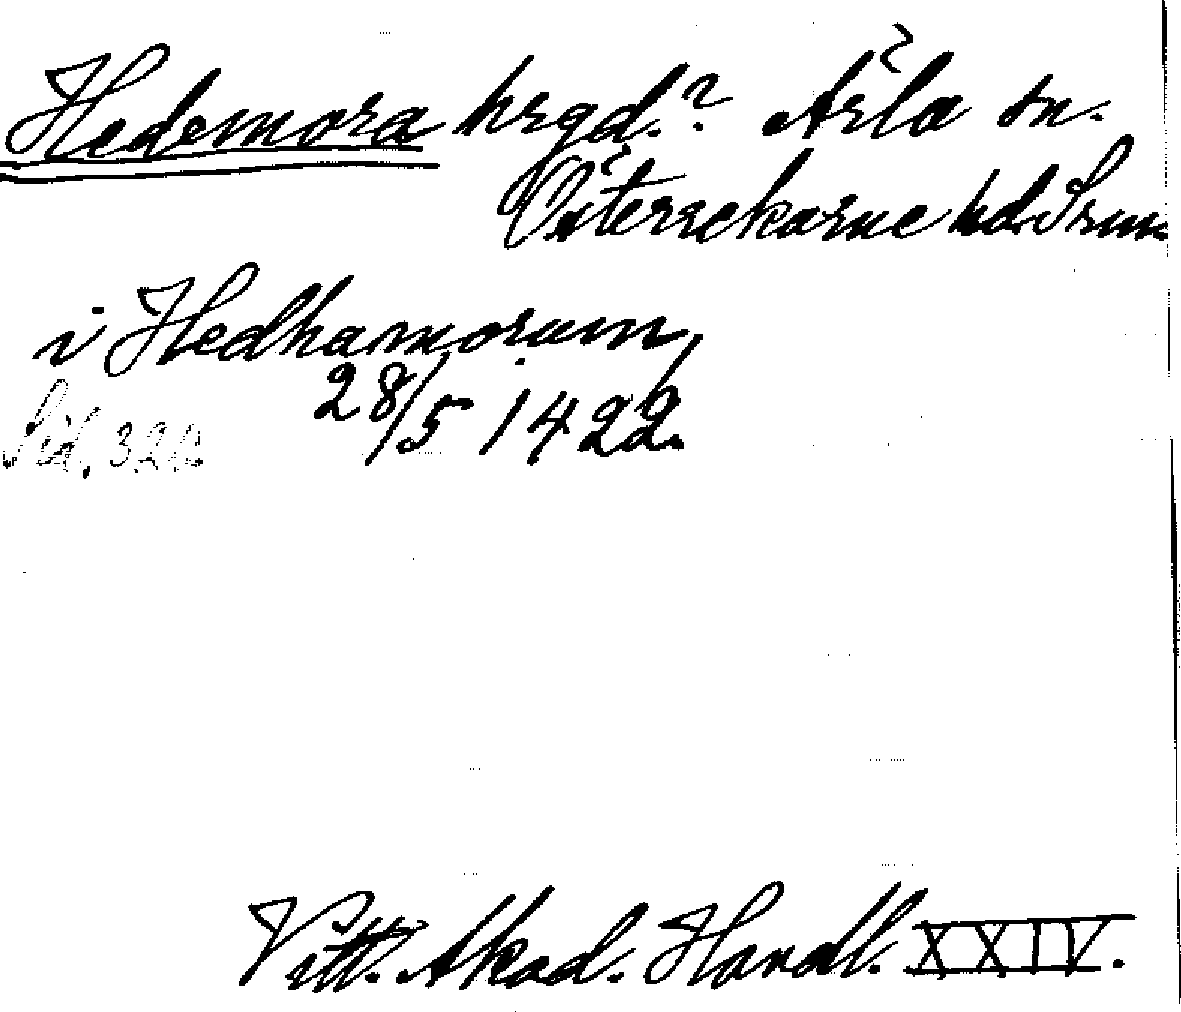 Hedemora hrgd.? Ärla sn.
Österrekarne hd. Srm.
i Hedhamorum,
28/5 1422.
Sid. 320
Vitt. Akad. Handl. XXIV.